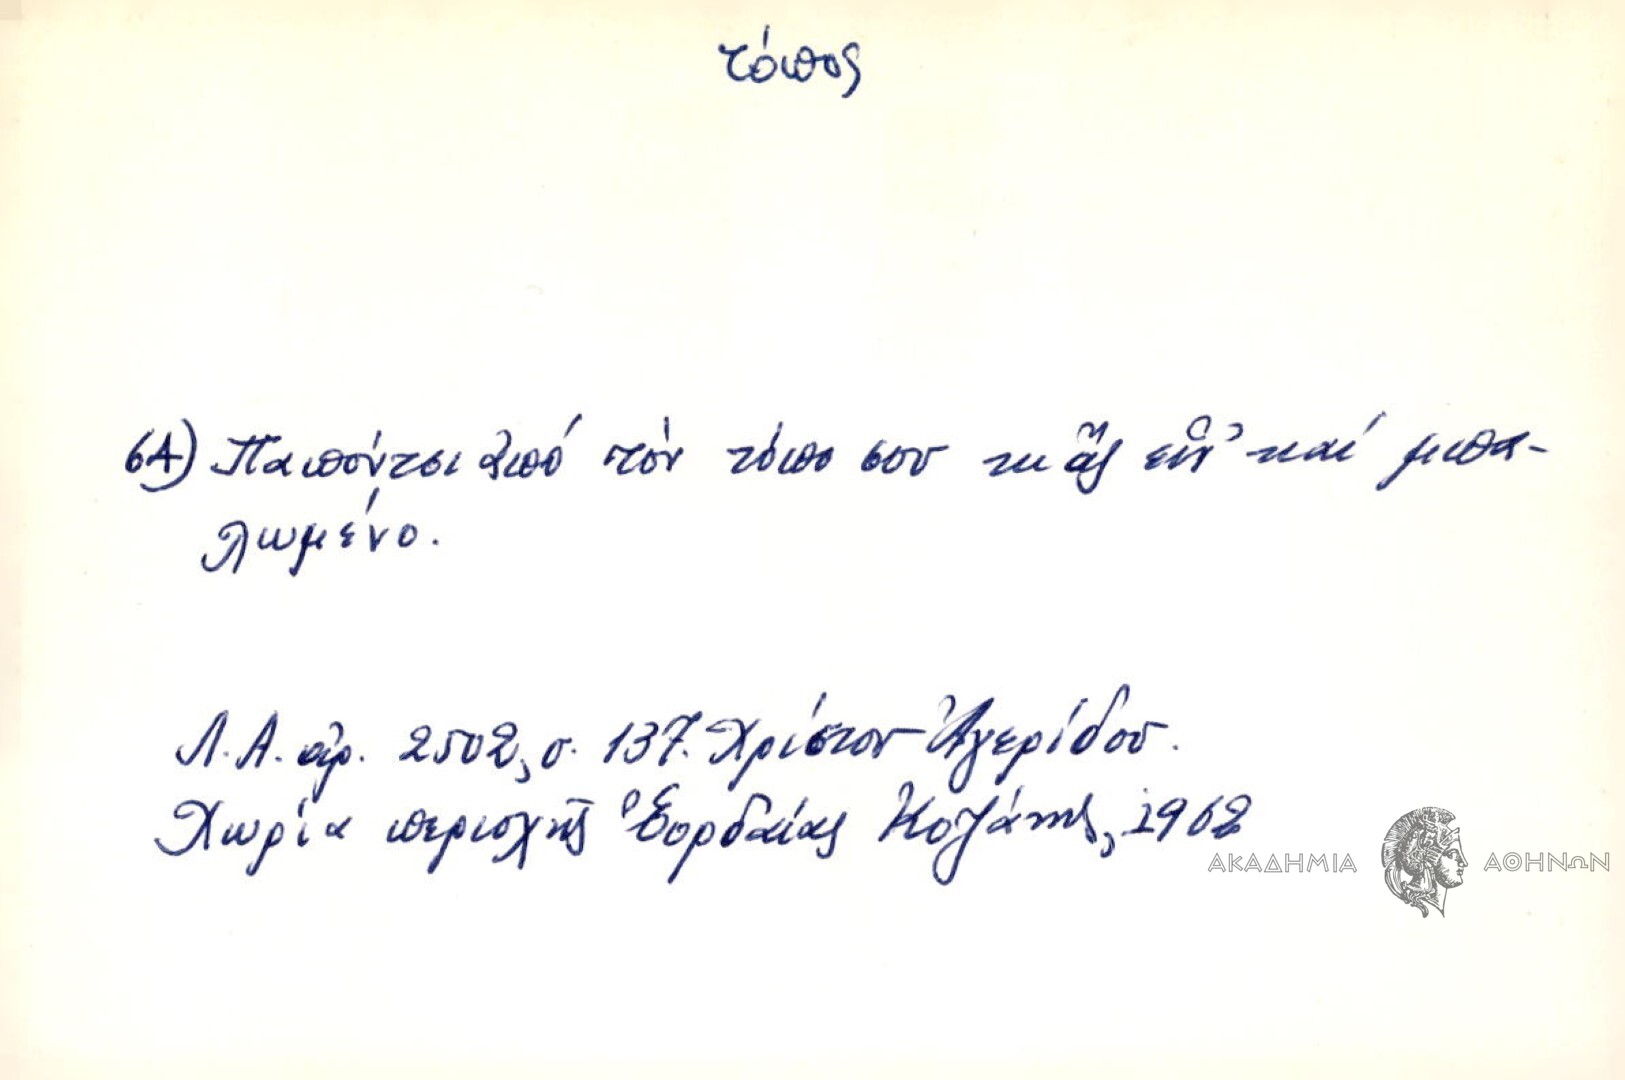 τόπος
64) Παπούτσι ἀπό τόν τόπο σου κι ἄς εἶν' καί μπα-
λωμένο.
Λ.Α. ἀρ. 2502, σ. 137. Χρίστου Ἀγερίδου.
Χωρία περιοχῆς Ἑορδαίας Κοζάνης, 1962
ΑΚΑΔΗΜΙΑ ΑΘΗΝΩΝ